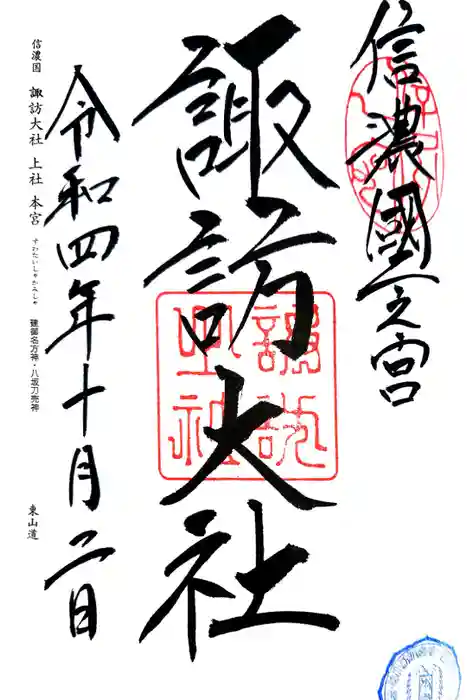 信濃國一之宮
諏訪大社
令和四年十月二日
信濃国 諏訪大社 上社 本宮 すわたいしゃかみしゃ 建御名方神・八坂刀売神 東山道